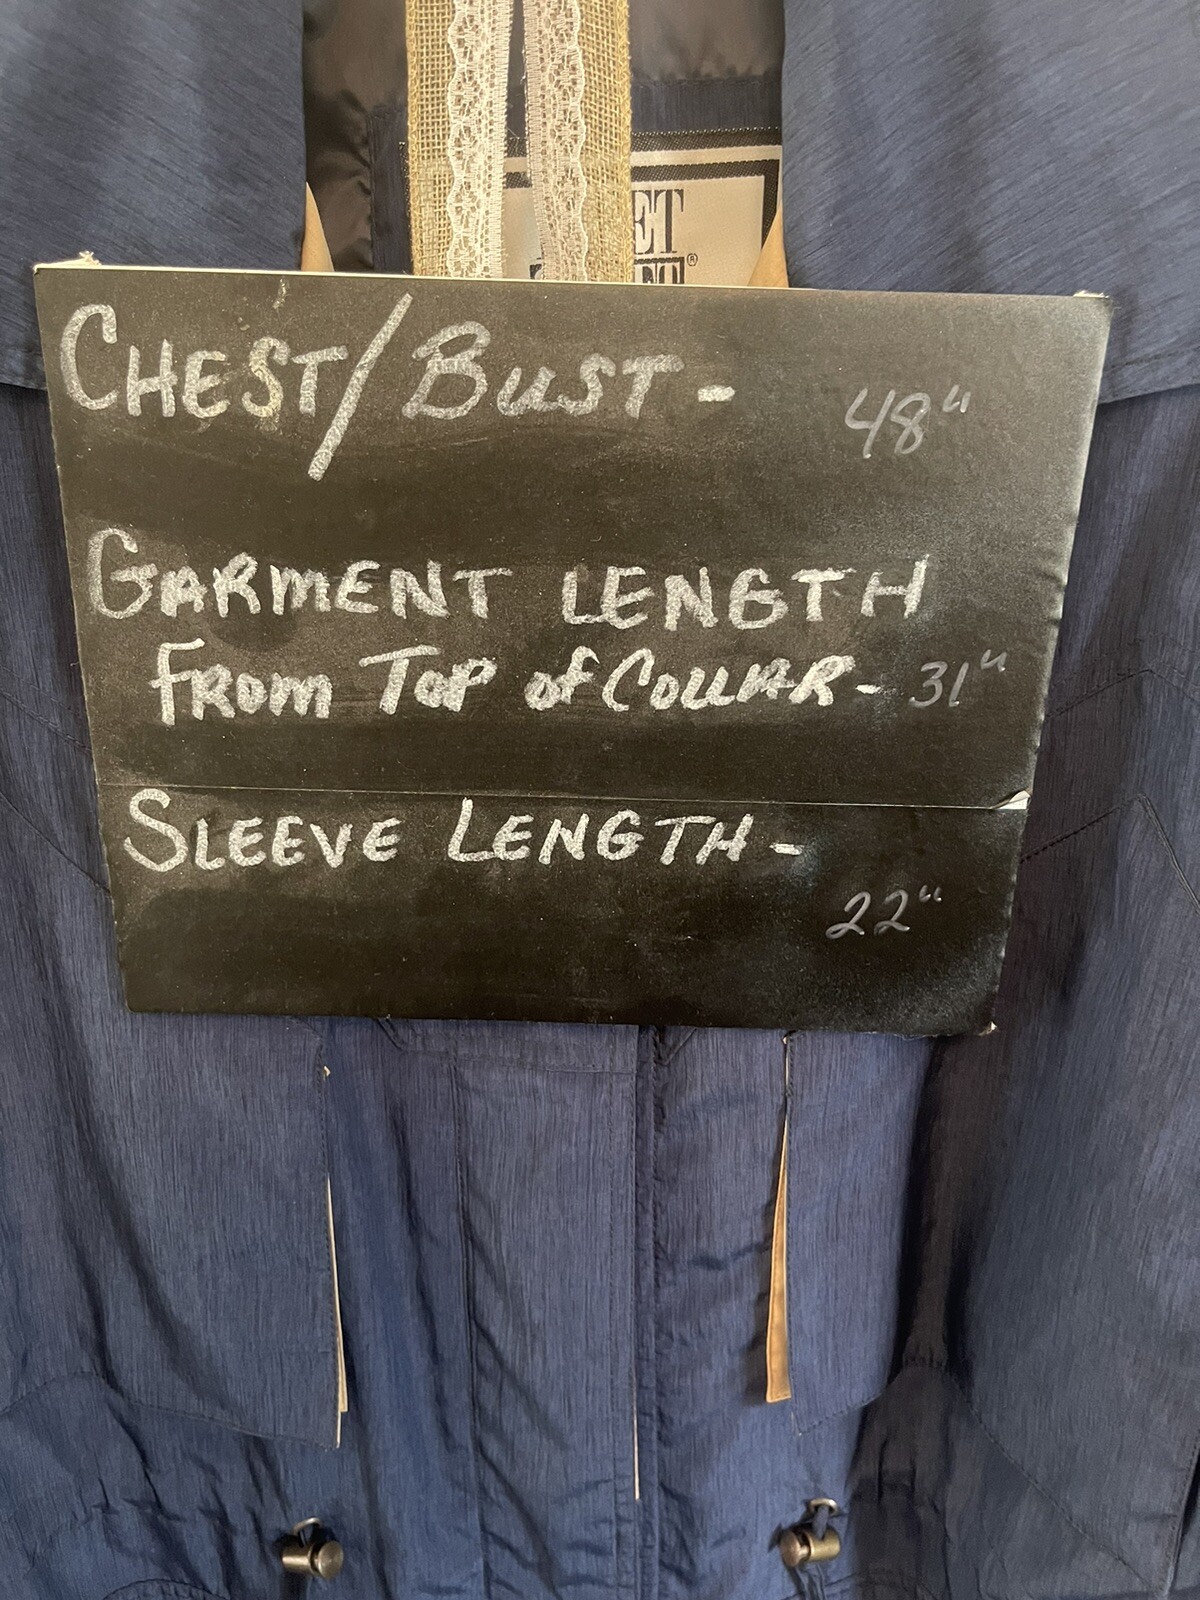 ET
®
CHEST/BUST - 48"
GARMENT LENGTH
FROM TOP OF COLLAR - 31"
SLEEVE LENGTH -
22"